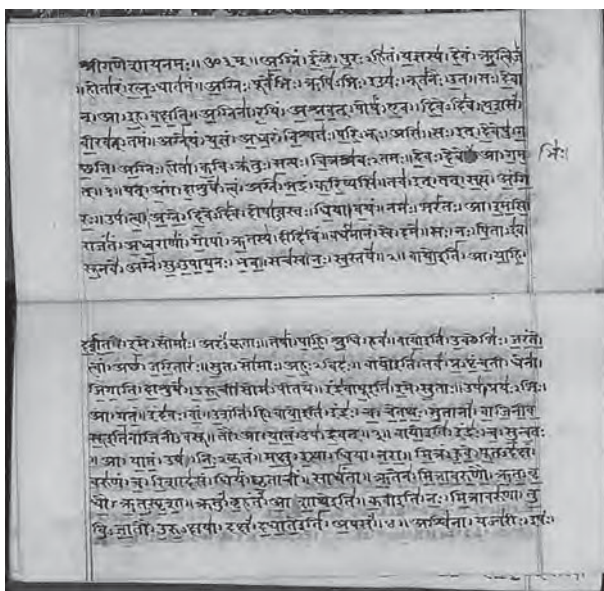 श्रीगणेशायनमः॥ॐ॥अग्निं।ईळे।पुरःऽहितं।यज्ञस्य।देवं।ऋत्विजं
॥होतारं।रत्नऽधातमं॥अग्निः।पूर्वेभिः।ऋषिऽभिः।ईड्यः।नूतनैः।उत।सः।देवा
न्।आ।इह।वक्षति॥अग्निना।रयिं।अश्नवत्।पोषं।एव।दिवेऽदिवे।यशसं
वीरवत्ऽतमं॥अग्ने।यं।यज्ञं।अध्वरं।विश्वतः।परिऽभूः।असि।सः।इत्।देवेषु।ग
च्छति॥अग्निः।होता।कविऽक्रतुः।सत्यः।चित्रश्रवःऽतमः।देवः।देवे आ।गम भिः।
त्॥१॥यत्।अंग।दाशुषे।त्वं।अग्ने।भद्रं।करिष्यसि।तव।इत्।तत्।सत्यं।अंगि
रः॥उप।त्वा।अग्ने।दिवेऽदिवे।दोषाऽवस्तः।धिया।वयं।नमः।भरंतः।आ।इमसि
राजंतं।अध्वराणां।गोपां।ऋतस्य।दीदिविं॥वर्धमानं।स्वे।दमे॥सः।नः।पिताऽइव
सूनवे।अग्ने।सुऽउपायनः।भव॥सचस्व।नः।स्वस्तये॥२॥वायोइति।आ।याहि।
दर्शत।इमे।सोमाः।अरंऽकृताः॥तेषां।पाहि।श्रुधि।हवं॥वायोइति।उक्थेभिः।जरंते
त्वां।अच्छ।जरितारः॥सुतऽसोमाः।अहःऽविदः॥वायोइति।तव।प्रऽपृंचती।धेना
जिगाति।दाशुषे॥उरूची।सोमऽपीतये॥इंद्रवायूइति।इमे।सुताः॥उप।प्रयःऽभिः।
आ।गतं॥इंदवः।वां।उशंति।हि॥वायोइति।इंद्रः।च।चेतथः।सुतानां।वाजिनीव
सूइतिवाजिनीऽवसू॥तौ।आ।यातं।उप।द्रवत्॥३॥वायोइति।इंद्रः।च।सुन्वतः
॥आ।यातं।उप।निःऽकृतं॥मक्षु।इत्था।धिया।नरा॥मित्रं।हुवे।पूतऽदक्षं
वरुणं।च।रिशादसं॥धियं।घृताचीं।साधंता॥ऋतेन।मित्रावरुणौ।ऋतऽवृ
धौ।ऋतऽस्पृशा॥क्रतुं।बृहंतं।आ।शाथेइति॥कवीइति।नः।मित्रावरुणा।तु
विऽजातौ।उरुऽक्षया॥दक्षं।दधातेइति।अपसं॥४॥अश्विना।यज्वरीः।इषः